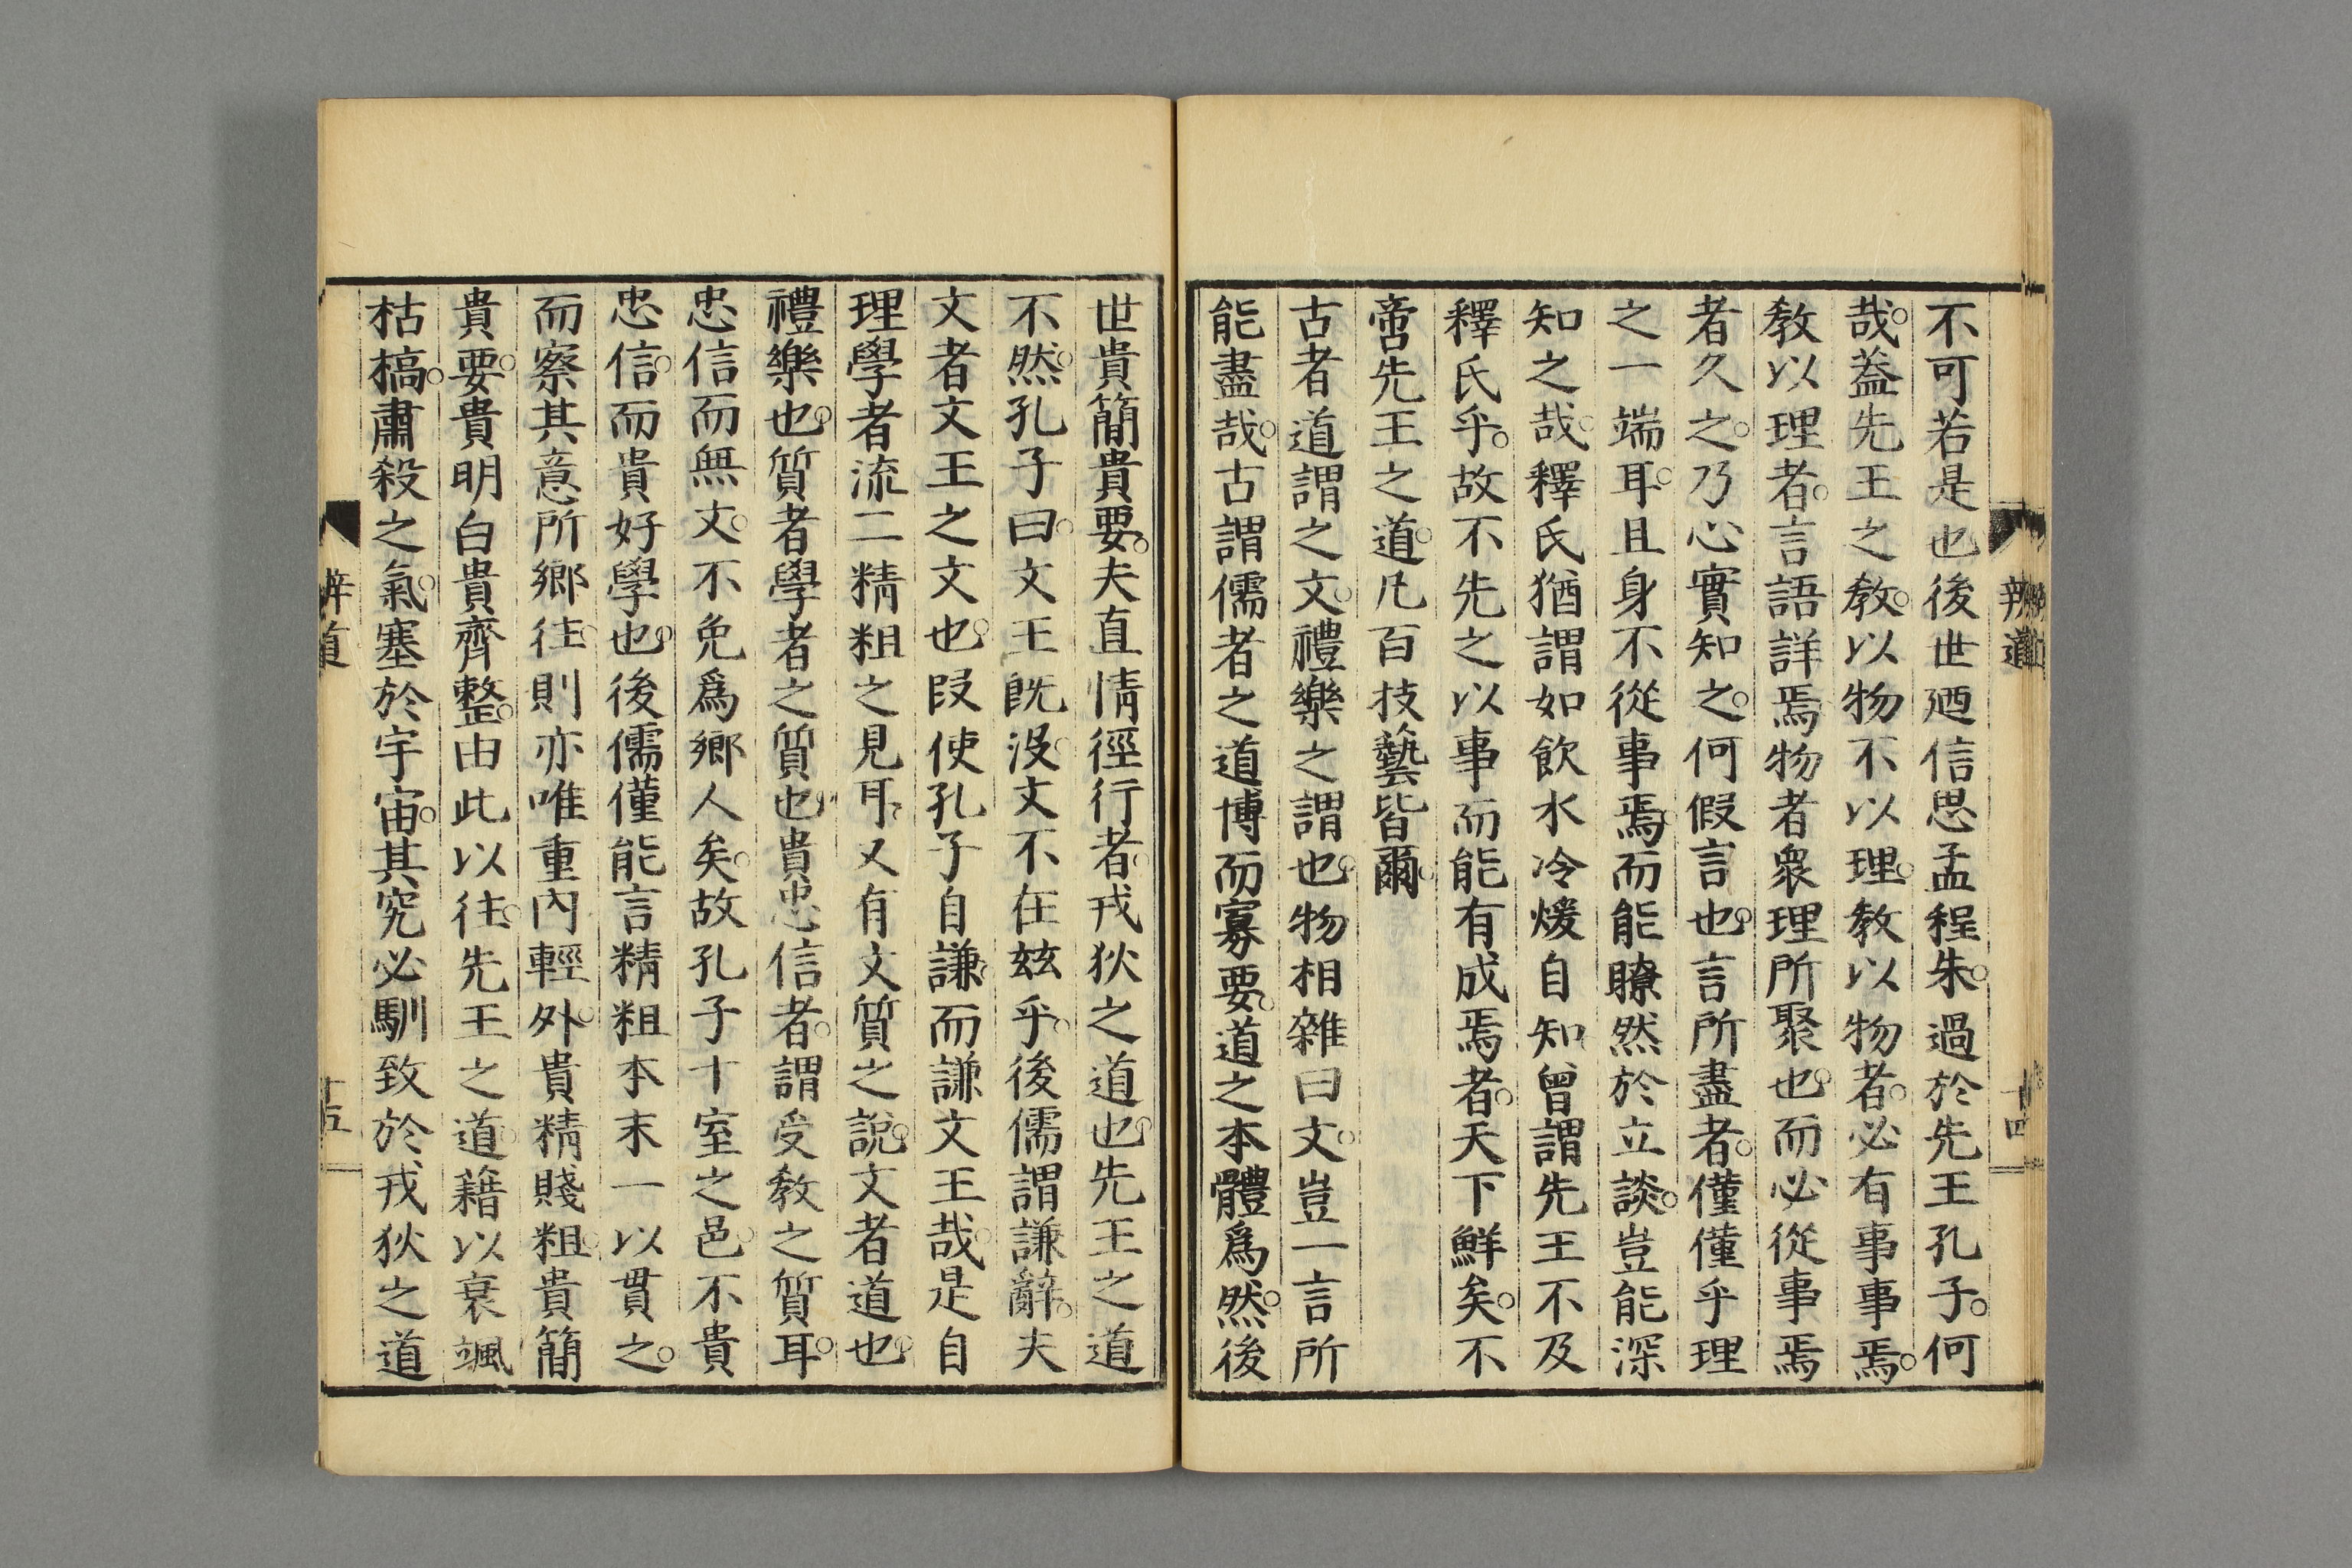 不可若是也後世迺信思孟程朱。過於先王孔子。何
哉。葢先王之教。以物不以理。教以物者。必有事事焉。
教以理者。言語詳焉物者衆理所聚也。而必從事焉
者久之。乃心實知之。何假言也。言所盡者。僅僅乎理
之一端耳。且身不從事焉。而能瞭然於立談。豈能深
知之哉。釋氏猶謂如飲水冷煖自知曾謂先王不及
釋氏乎。故不先之以事而能有成焉者。天下鮮矣。不
啻先王之道。凡百技藝皆爾。
古者道謂之文。禮樂之謂也。物相雜曰文。豈一言所
能盡哉。古謂儒者之道博而寡要。道之本體爲然。後
辨道
十四
世貴簡貴要。夫直情徑行者。戎狄之道也。先王之道
不然。孔子曰。文王既沒。文不在玆乎。後儒謂謙辭。夫
文者文王之文也。叚使孔子自謙。而謙文王哉。是自
理學者流二精粗之見耳。又有文質之說。文者道也。
禮樂也。質者學者之質也。貴忠信者。謂受教之質耳。
忠信而無文。不免爲鄉人矣。故孔子十室之邑。不貴
忠信。而貴好學也。後儒僅能言精粗本末一以貫之。
而察其意所鄉往。則亦唯重內輕外。貴精賤粗。貴簡
貴要。貴明白貴齊整。由此以往。先王之道。藉以衰颯
枯槁。肅殺之氣。塞於宇宙。其究必馴致於戎狄之道
辛道
十五